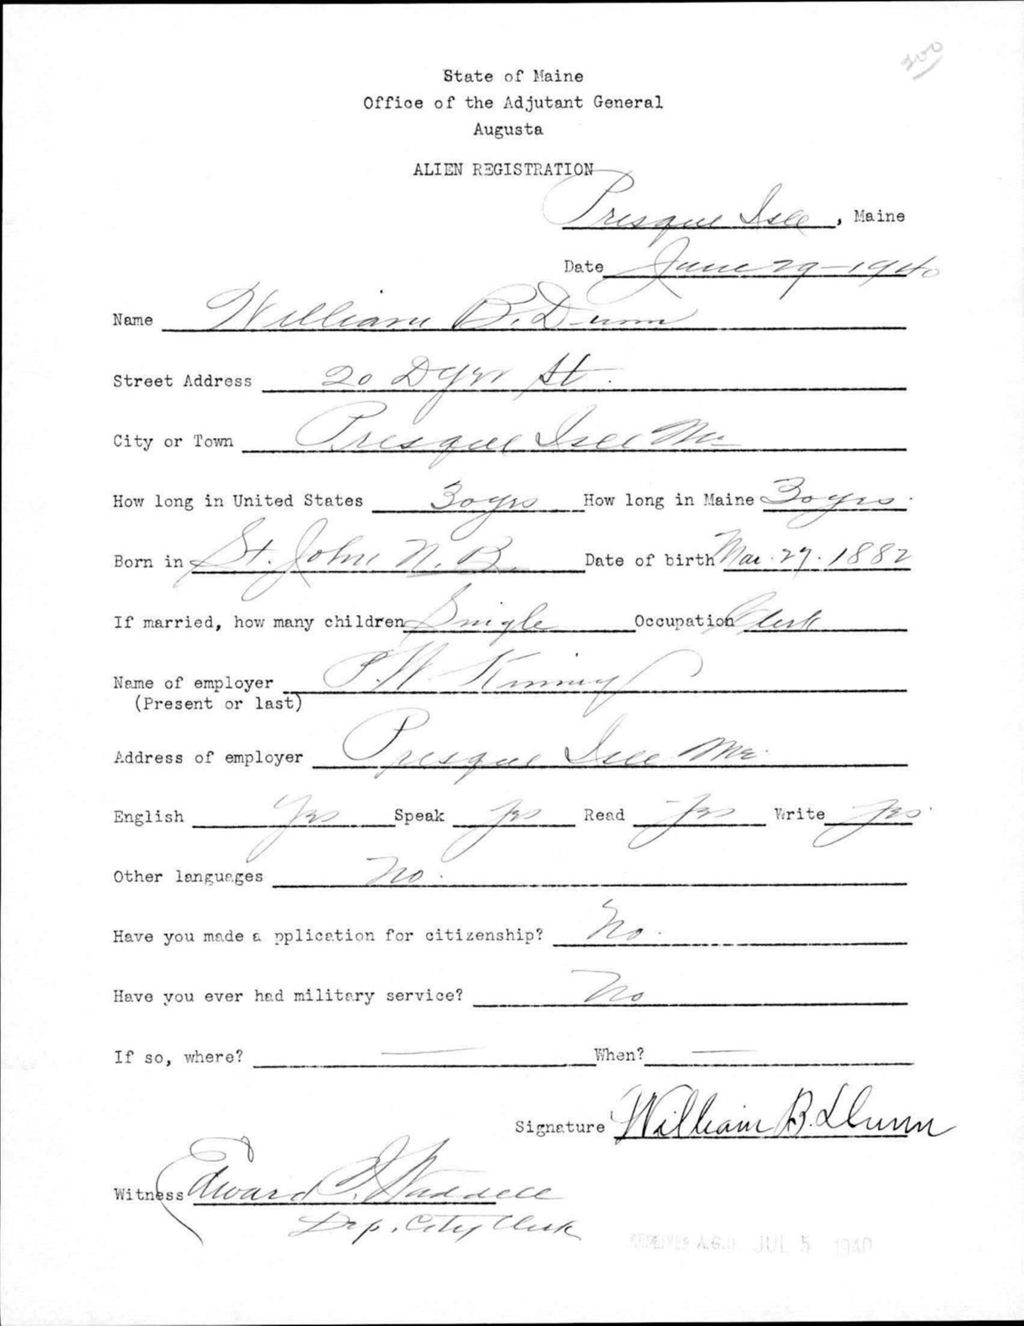 300
State of Maine
Office of the Adjutant General
Augusta
ALIEN REGISTRATION
Presque Isle, Maine
Date June 29-1940
Name William B. Dunn
Street Address 20 Dyer St.
City or Town Presque Isle Me
How long in United States 30 yrs How long in Maine 30 yrs.
Born in St. John N. B. Date of birth Mar. 29. 1882
If married, how many children Single Occupation Clerk
Name of employer P. W. Kinney
(Present or last)
Address of employer Presque Isle Me.
English Yes Speak Yes Read Yes Write Yes.
Other languages No.
Have you made a pplication for citizenship? No.
Have you ever had military service? No
If so, where? — When? —
Signature William B. Dunn
Witness Edward Waddell
Dep. City Clerk
RECEIVED A.G.O. JUL 5 1940